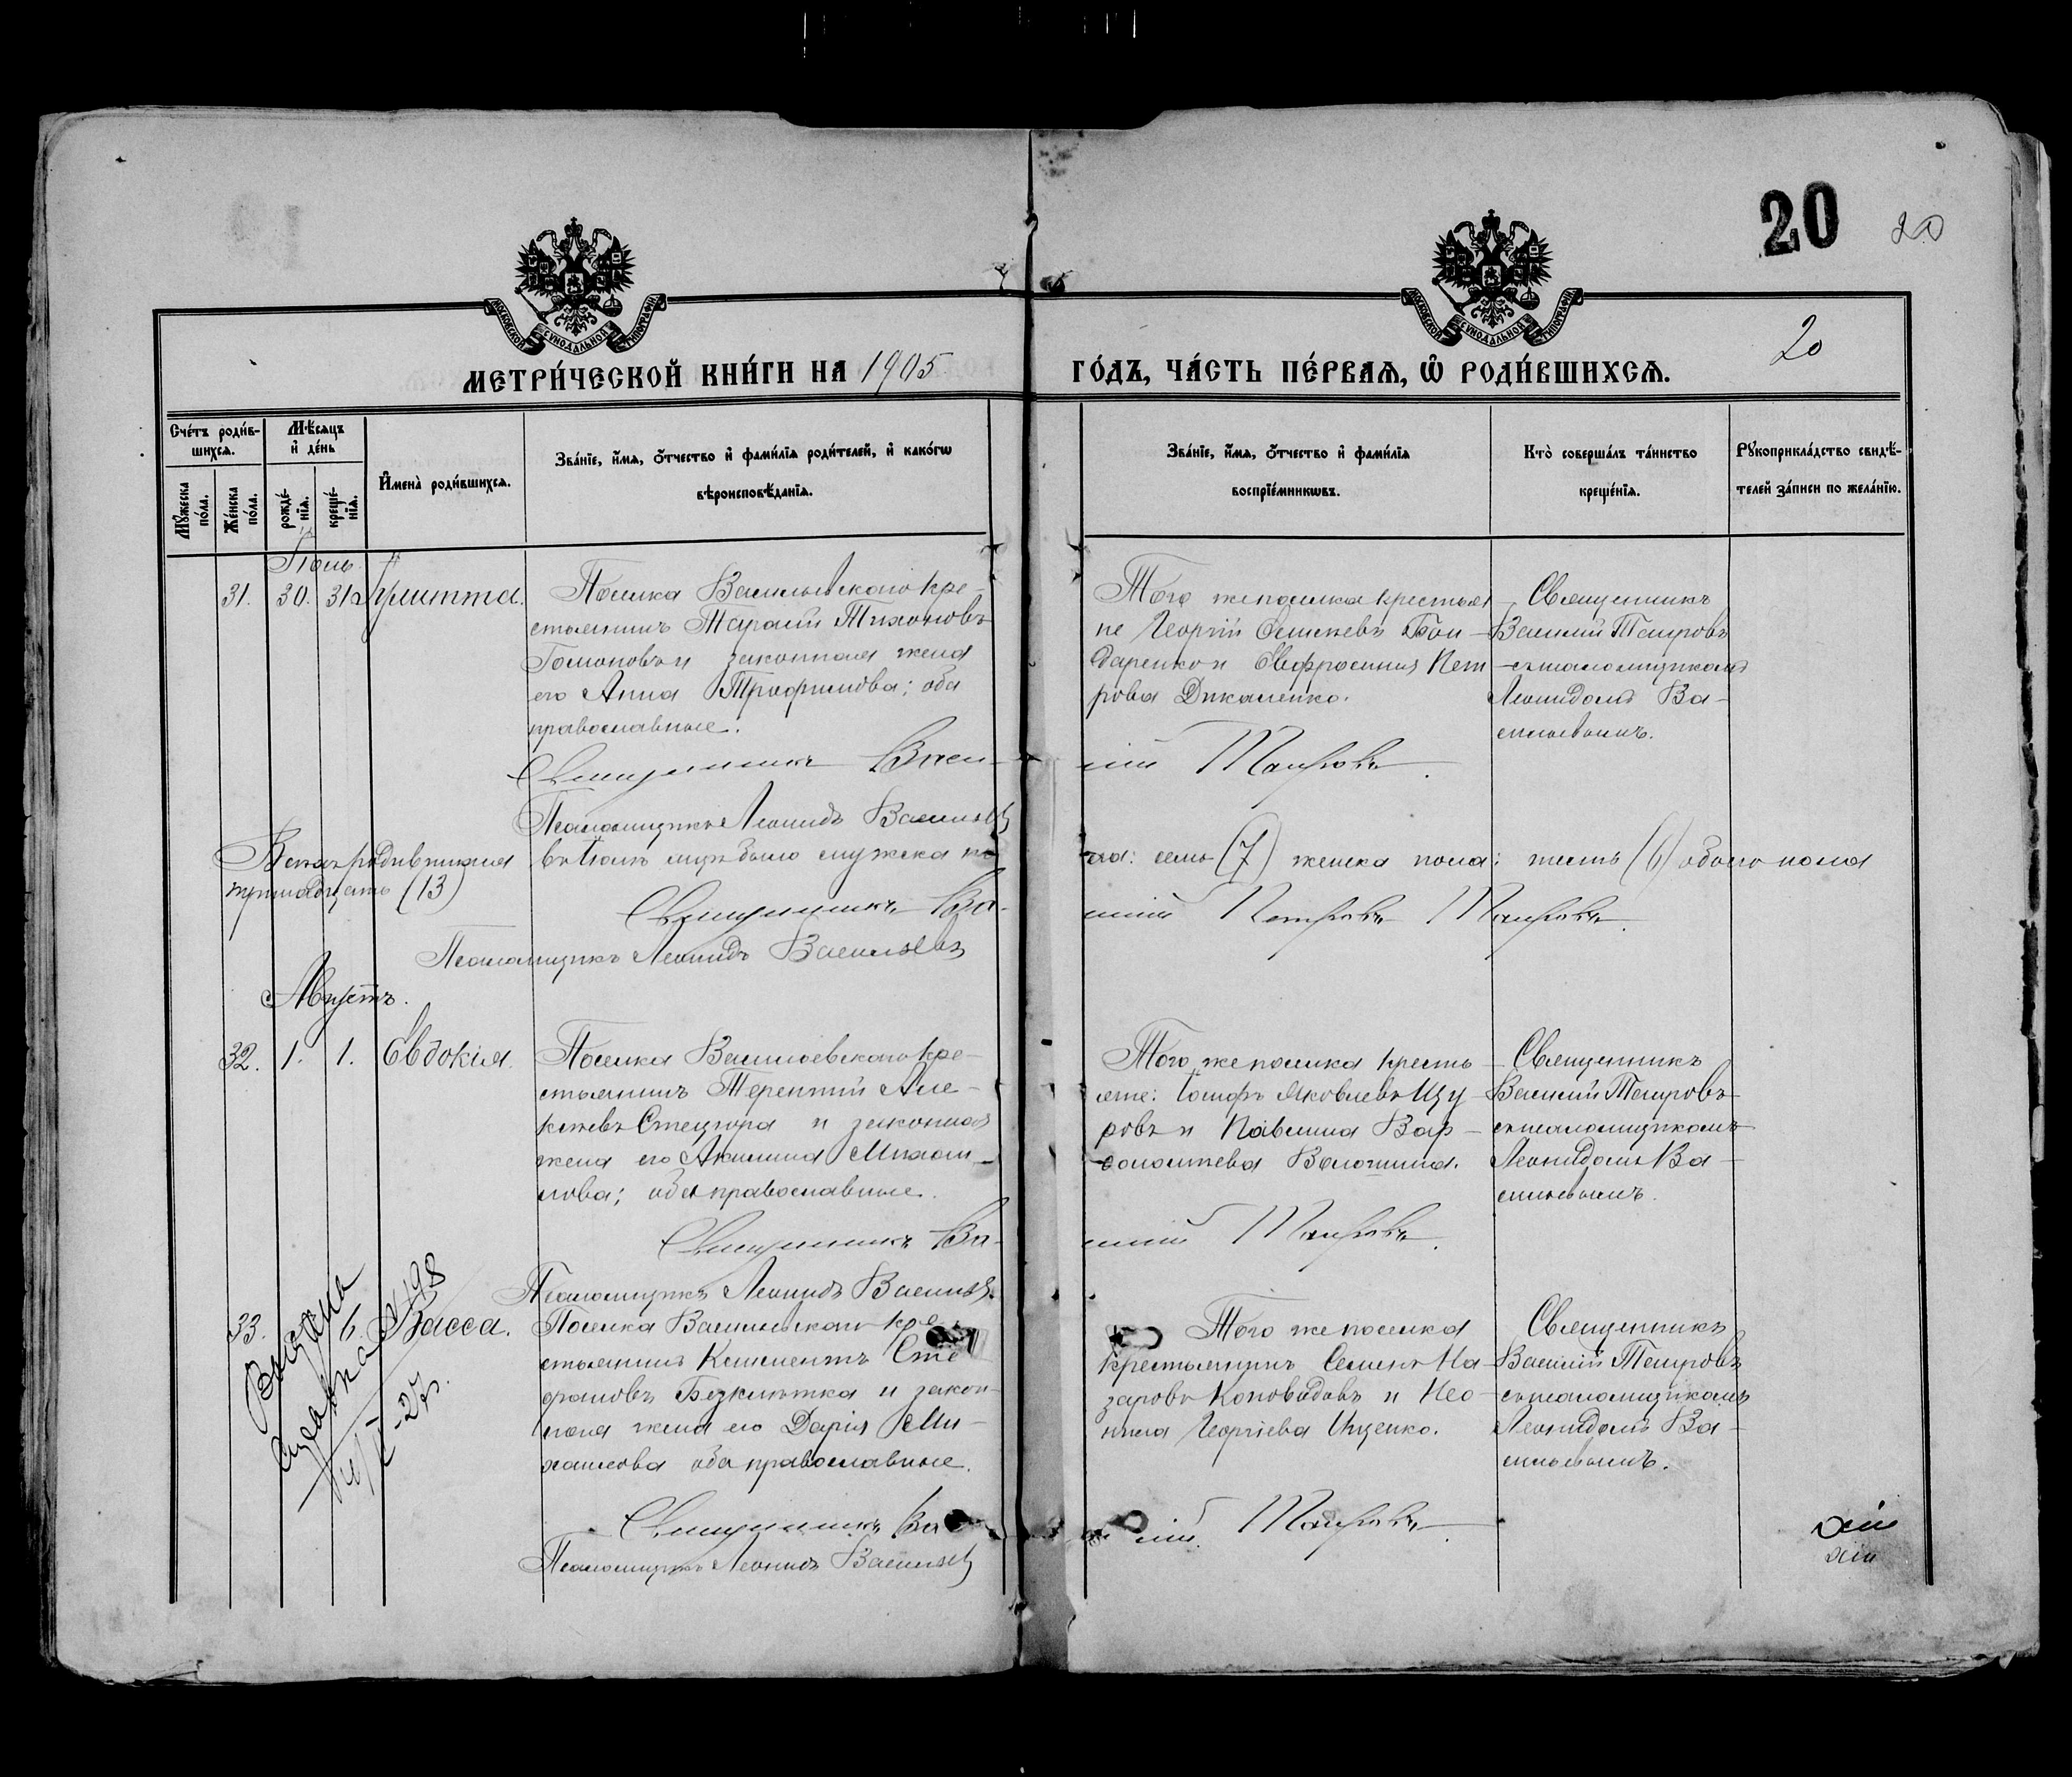 20
20
МОСКОВСКОЙ СѴНОДАЛЬНОЙ ТИПОГРАФІИ
МОСКОВСКОЙ СѴНОДАЛЬНОЙ ТИПОГРАФІИ
20
МЕТРИ́ЧЕСКОЙ КНИ́ГИ НА 1905
ГО́ДЪ, ЧА́СТЬ ПЕ́РВАѦ, Ѽ РОДИ́ВШИХСѦ.
Сче́тъ роди́в-
шихсѧ.
Мѣ́сѧцъ
и҆ де́нь
Мꙋ́жеска
по́ла.
Же́нска
по́ла.
рожде́-
нїѧ.
креще́-
нїѧ.
И҆мена̀ роди́вшихсѧ.
Зва́нїе, и҆́мѧ, о҆́тчество и҆ фами́лїѧ роди́телей, и҆ како́гѡ
вѣроисповѣ́данїѧ.
Зва́нїе, и҆́мѧ, о҆́тчество и҆ фами́лїѧ
воспрїе́мникѡвъ.
Кто̀ соверша́лъ та́инство
креще́нїѧ.
Рꙋкоприкла́дство свидѣ́-
телей за́писи по жела́нїю.
Іюль
31. 30. 31
Поселка Васильевскаго кре-
стьянинъ Тарасій Тихоновъ
Гомоновъ и законная жена
его Анна Трофимова; оба
православные.
Того же поселка крестья
не Георгій
даренко и Евфросинія Пет
рова Дикаленко.
Священникъ
Василій Таировъ
съ псаломщикомъ
Леонидомъ Ва-
сильевымъ.
Священникъ Васи-
лій Таировъ.
Псаломщикъ Леонидъ Васильевъ
Всехъ родившихся въ Іюлѣ мѣс. было мужска по
ла: семь (7) женска пола: шесть (6) обоего пола
тринадцать (13)
Священникъ Ва-
силій Петровъ Таировъ.
Псаломщикъ Леонидъ Васильевъ
Августъ.
32. 1. 1. Евдокія.
Поселка Васильевскаго кре-
стьянинъ Терентій Але-
ксѣевъ Стецюра и законная
жена его Акилина Михаи-
лова; оба православные.
Того же поселка кресть
яне: Іосифъ Яковлевъ Щу
ровъ и Павлина Вар-
ѳоломеева Волошина.
Священникъ
Василій Таировъ
съ псаломщикомъ
Леонидомъ Ва-
сильевымъ.
Священникъ Ва-
силій Таировъ.
Псаломщикъ Леонидъ Васильевъ
33. 6. Васса.
Выдана
справка №198
27г.
Поселка Васильевскаго кре
стьянинъ Климентъ Сте
фановъ Безклѣтка и закон-
ная жена его Дарія Ми-
хаилова оба православные.
Того же поселка
крестьянинъ Семенъ На-
заровъ Коновидовъ и Нео-
нила Георгіева Ищенко.
Священникъ
Василій Таировъ
съ псаломщикомъ
Леонидомъ Ва-
сильевымъ.
Священникъ Васи
лій Таировъ.
Псаломщикъ Леонидъ Васильевъ